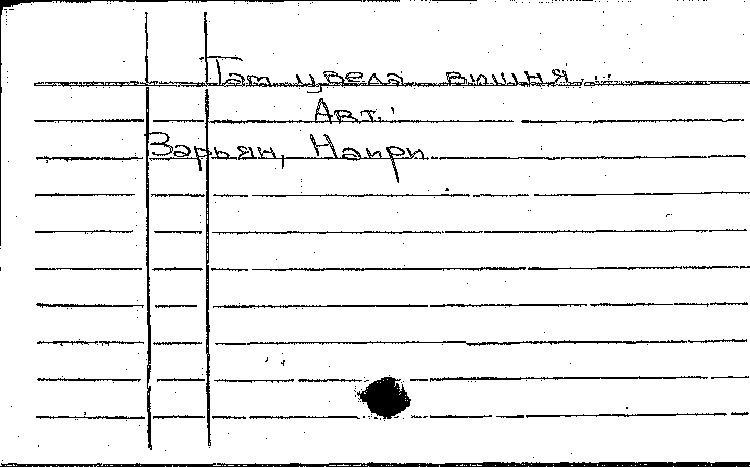 Там цвела вишня...
Авт.:
Зарьян, Наири